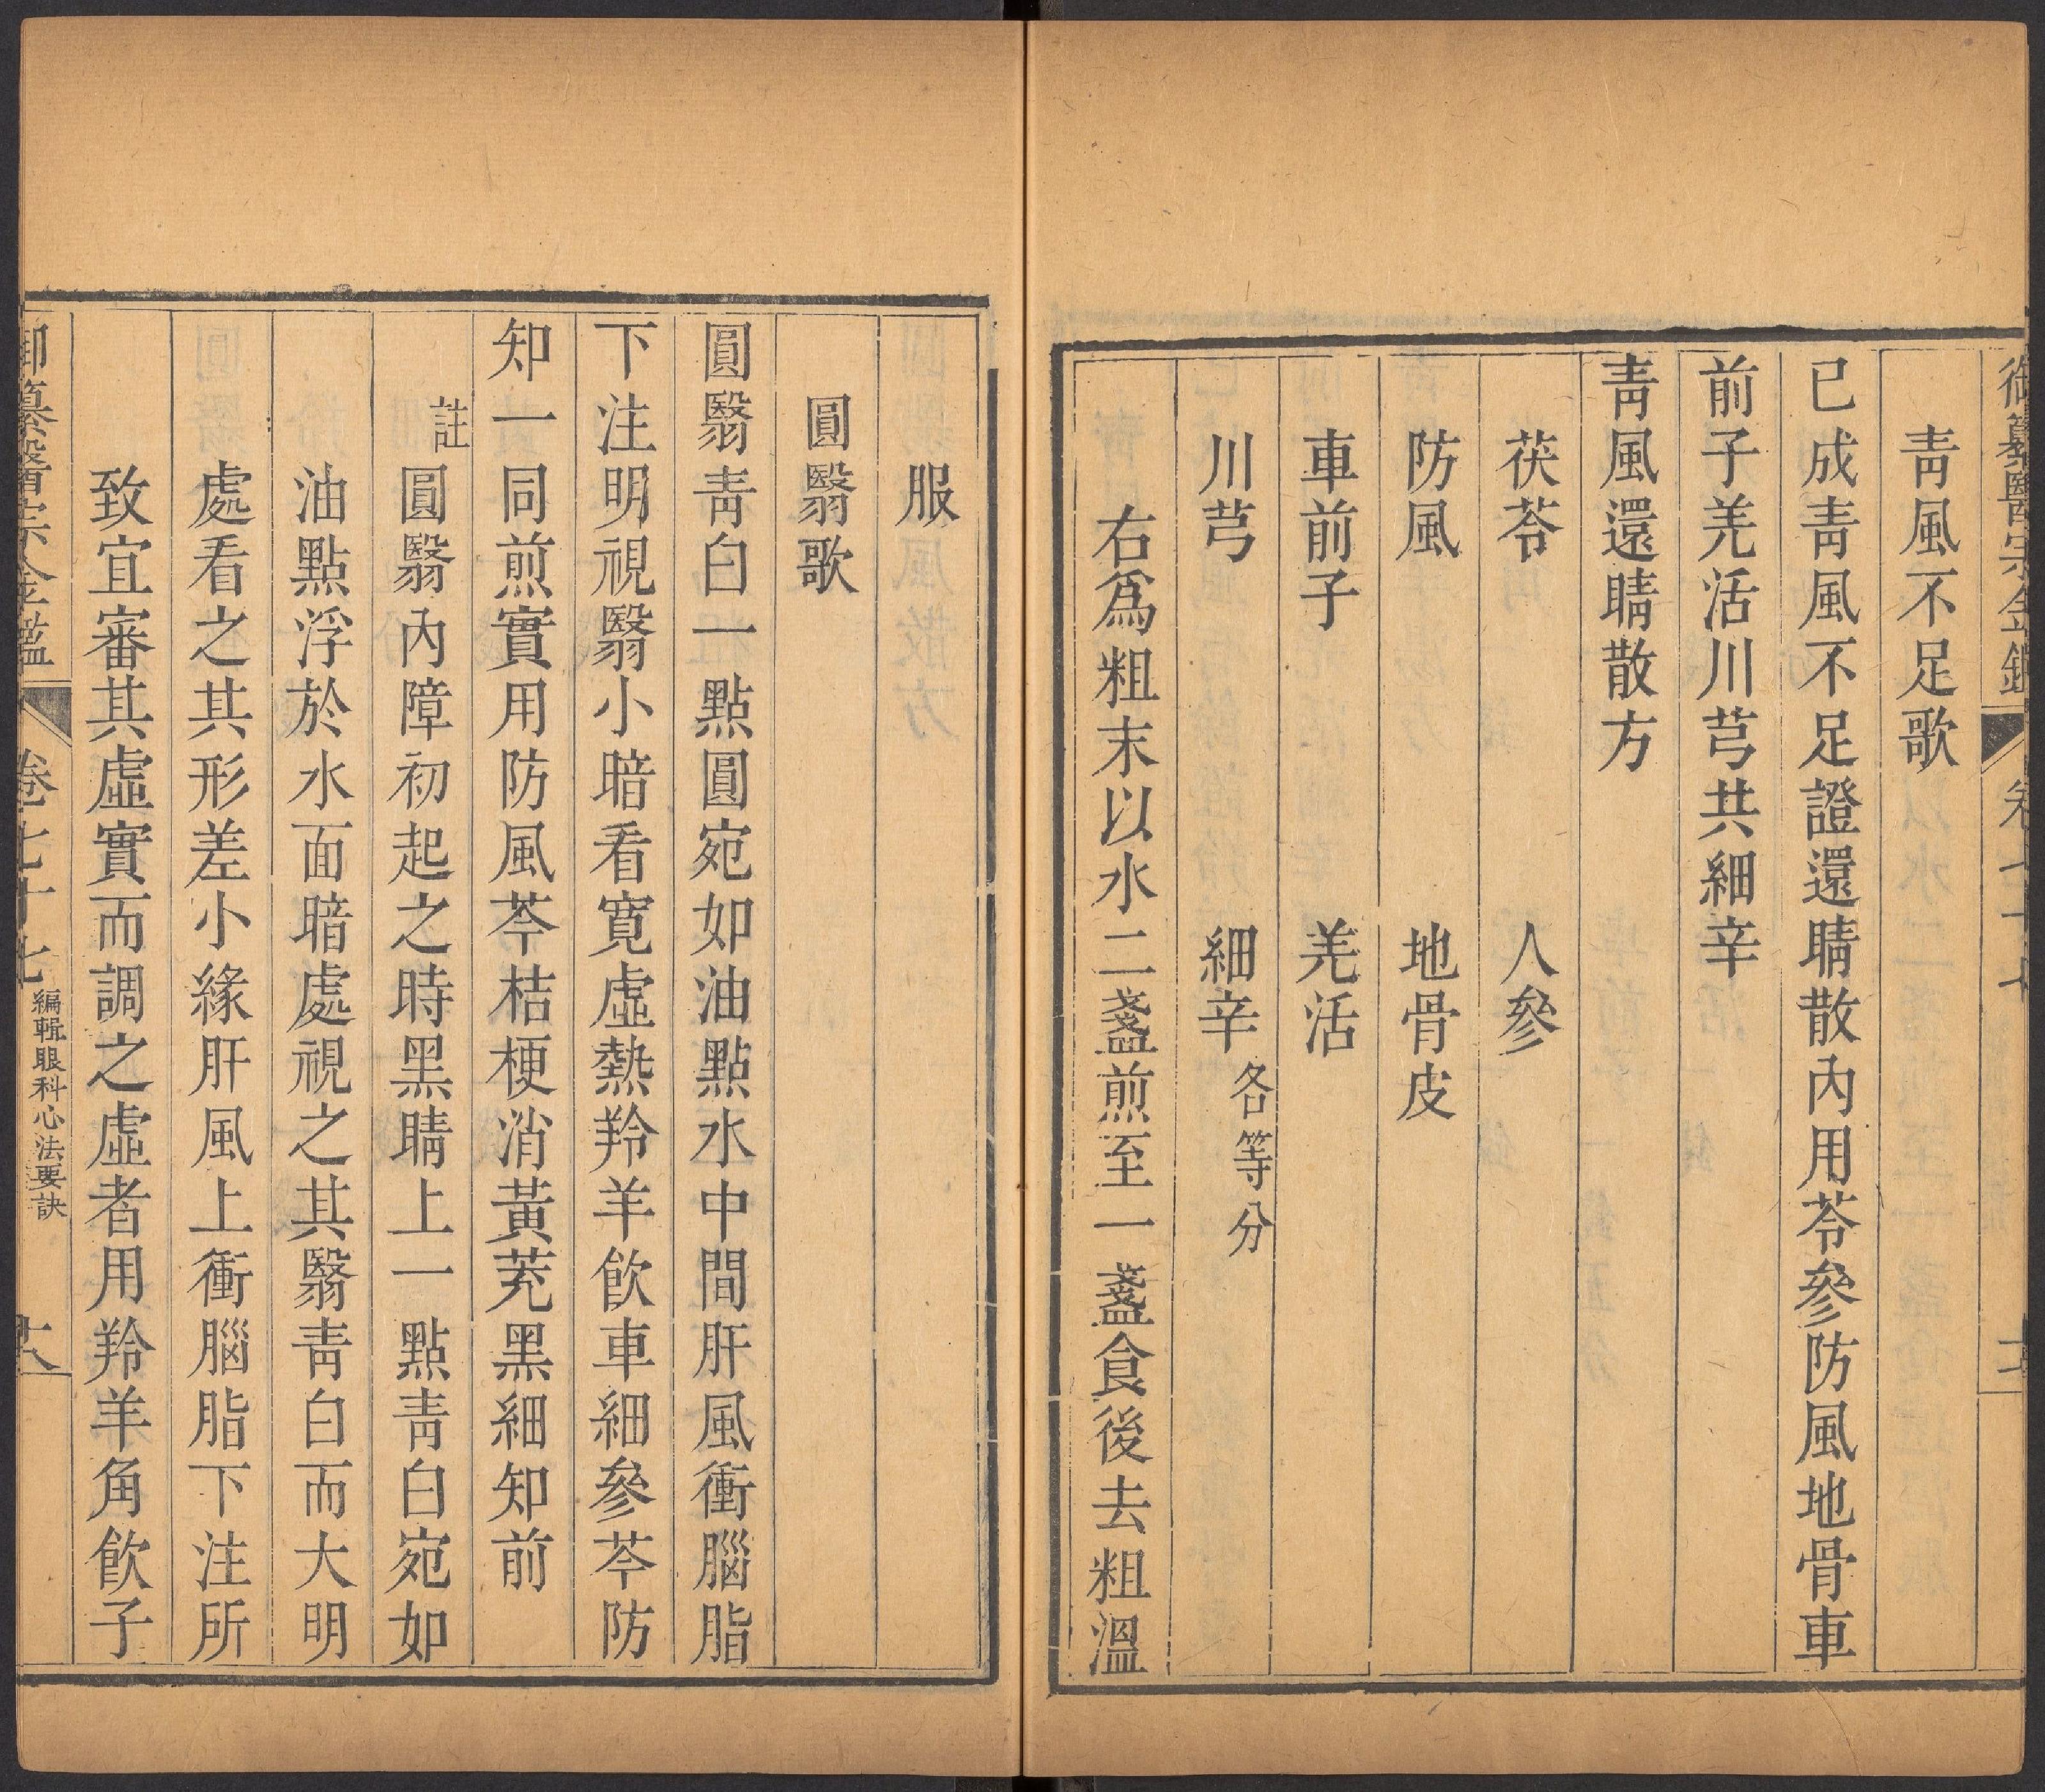 御纂醫宗金鑑 卷七十七
青風不足歌
已成青風不足證還睛散內用苓參防風地骨車
前子羌活川芎共細辛
青風還睛散方
茯苓 人參
防風 地骨皮
車前子 羌活
川芎 細辛各等分
右爲粗末以水二盞煎至一盞食後去粗溫
服
圓翳歌
圓翳青白一點圓宛如油點水中間肝風衝腦脂
下注明視翳小暗看寬虛熱羚羊飲車細參芩防
知一同煎實用防風芩桔梗消黃茺黑細知前
註圓翳內障初起之時黑睛上一點青白宛如
油點浮於水面暗處視之其翳青白而大明
處看之其形差小緣肝風上衝腦脂下注所
致宜審其虛實而調之虛者用羚羊角飲子
御纂醫宗金鑑 卷七十七 編輯眼科心法要訣 十八